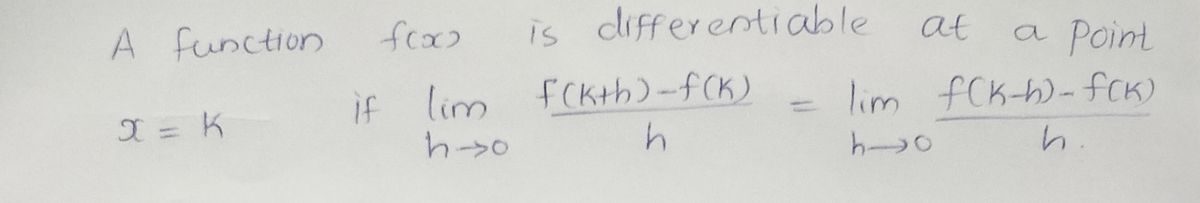 A function f(x) is differentiable at a point
x = K if lim h→0 f(K+h)-f(K)/h = lim h→0 f(K-h)-f(K)/h.